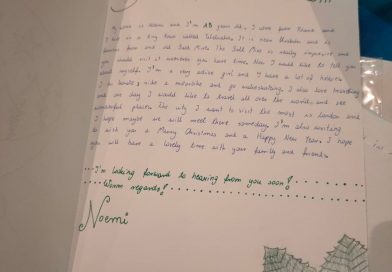 My name is Noemi and I'm 15 years old. I live from Poland and
I live in a tiny town called Wieliczka. It is near Kraków and is
famous from and old Salt Mine. The Salt Mine is really impressive and
you would visit it whenever you have time. Now I would like to tell you
about myself. I'm a very active girl and I have a lot of hobbies.
I do, ride a motorbike and go. I also love travelling
and one day I would like to travel all over the world, and see
wonderful places. The city I want to visit the most is London and
I hope maybe we will meet there someday. I'm also writing
to wish you a Merry Christmas and a Happy New Year. I hope
you will have a lovely time with your family and friends.
I'm looking forward to hearing from you soon!
Warm regards!
Noemi